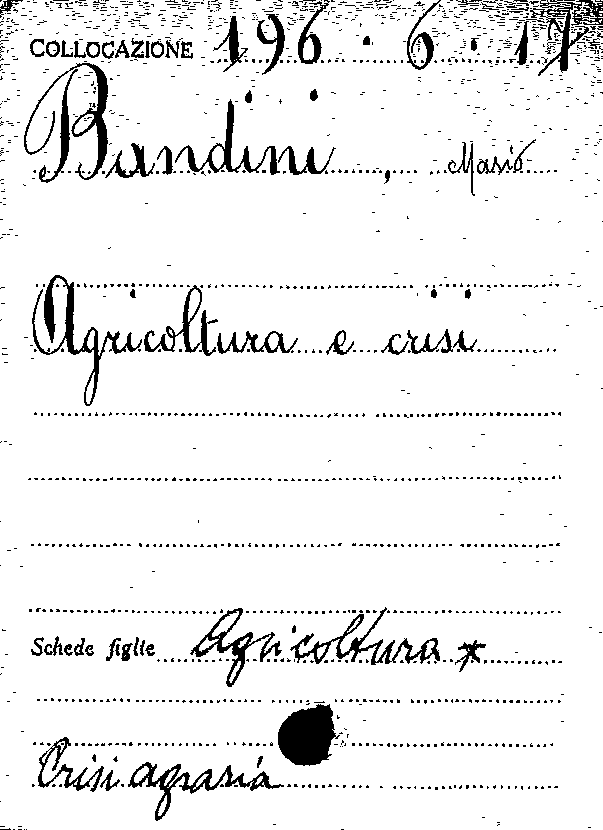 COLLOCAZIONE 196.6.17
Bandini, Mario
Agricoltura e crisi
Schede figlie Agricoltura *
Crisi agraria